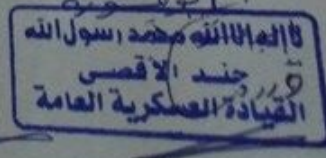 لا إله إلا الله محمد رسول الله
جند الأقصى
القيادة العسكرية العامة